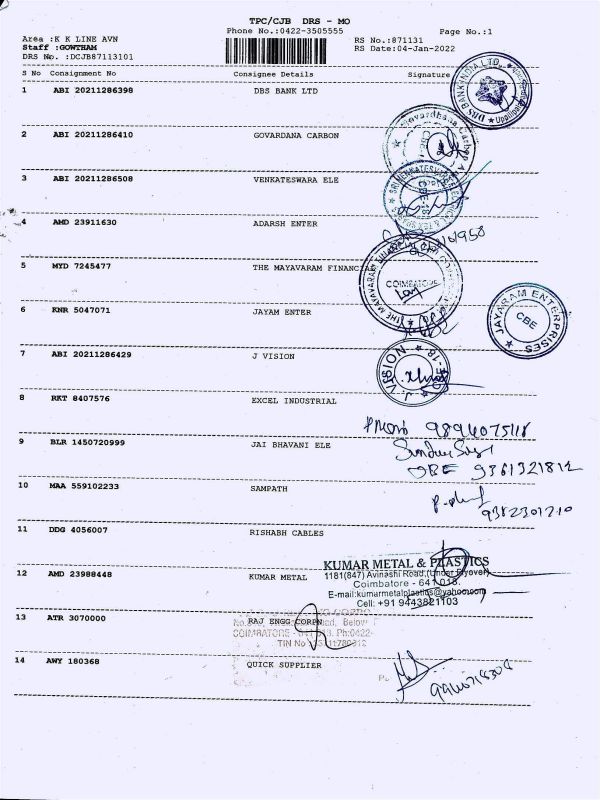 TPC/CJB DRS - MO
Phone No.:0422-3505555
Page No.:1
Area :K K LINE AVN
RS No.:871131
Staff :GOWTHAM
RS Date:04-Jan-2022
DRS No. :DCJB87113101
S No Consignment No Consignee Details Signature
1 ABI 20211286398 DBS BANK LTD
DBS BANK INDIA LTD.
2 ABI 20211286410 GOVARDANA CARBON
3 ABI 20211286508 VENKATESWARA ELE
4 AMD 23911630 ADARSH ENTER
5 MYD 7245477 THE MAYAVARAM FINANC
COIMBATORE
6 KNR 5047071 JAYAM ENTER
JAYARAM ENTERPRISES
CBE
7 ABI 20211286429 J VISION
J. VISION
8 RKT 8407576 EXCEL INDUSTRIAL
9 BLR 1450720999 JAI BHAVANI ELE
9361321812
10 MAA 559102233 SAMPATH
9382301210
11 DDG 4056007 RISHABH CABLES
KUMAR METAL & PLASTICS
1181(847) Avinashi Road,(Under Flyover)
12 AMD 23988448 KUMAR METAL
Coimbatore - 641 018.
E-mail:kumarmetalplastics@yahoo.com
Cell: +91 9443821103
13 ATR 3070000 RAJ ENGG CORPN
14 AWY 180368 QUICK SUPPLIER